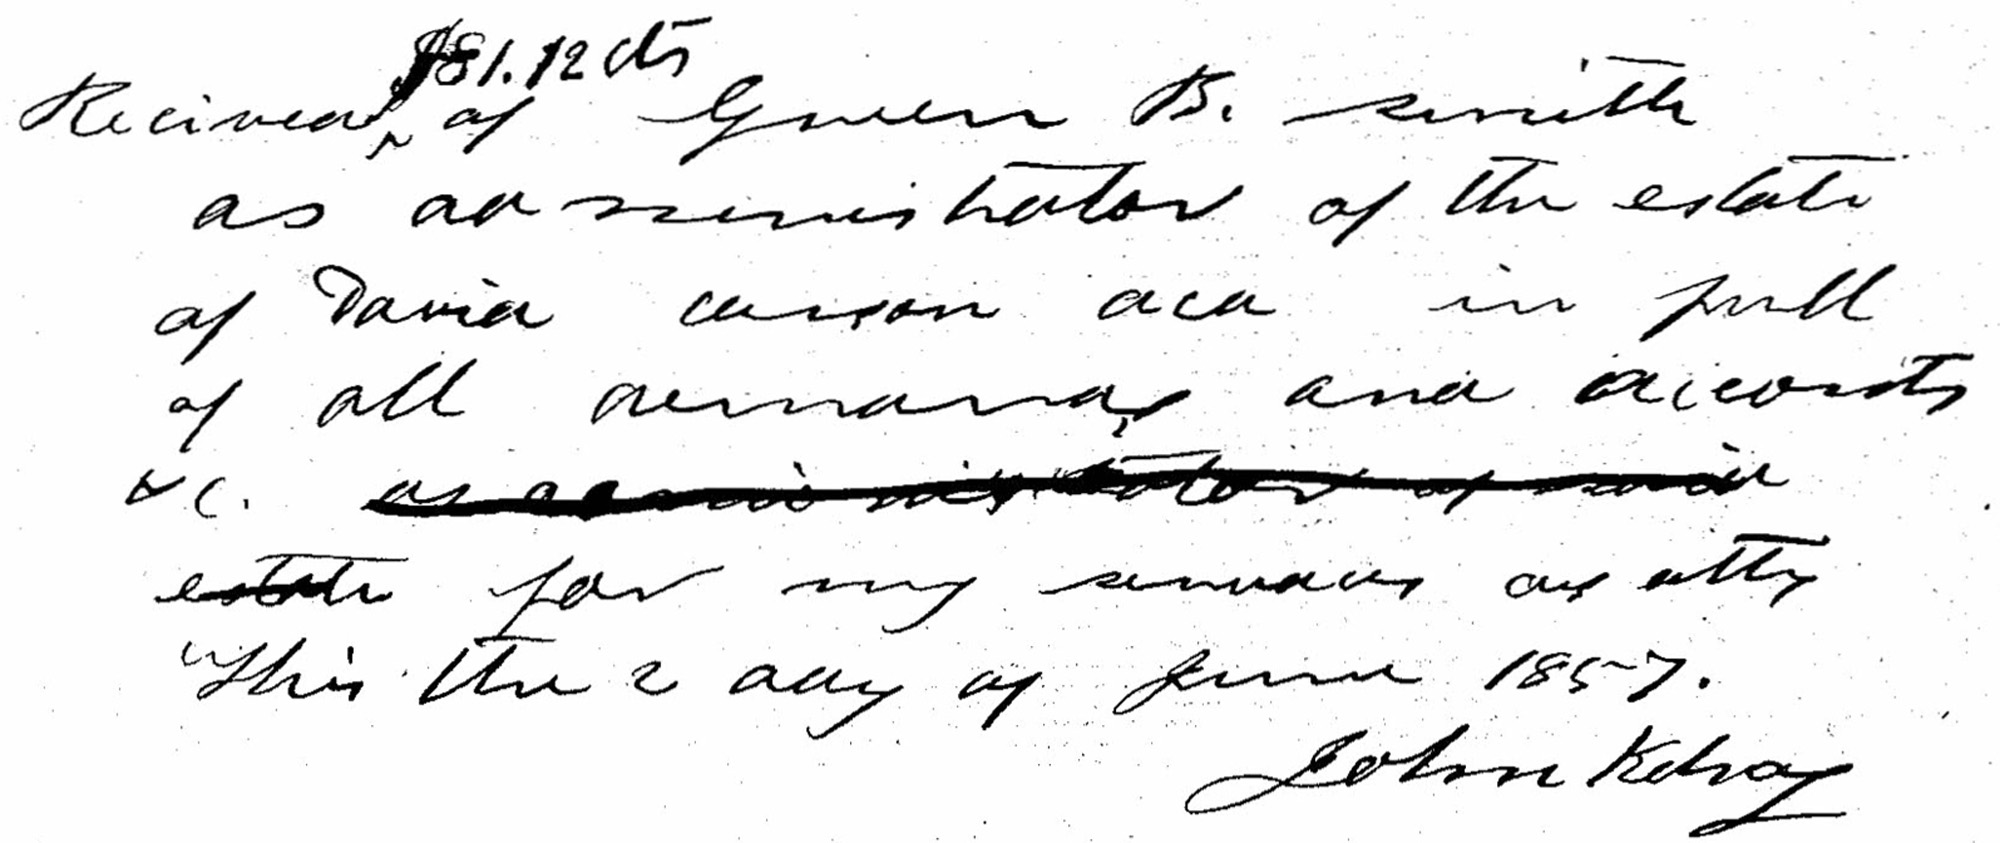 $81.12 cts
Recived of Green B. Smith
as administrator of the estate
of David Carson dcd in full
of all demands and accounts
&c. as administrator of said
estate for my services as atty
This the 2 day of June 1857.
John